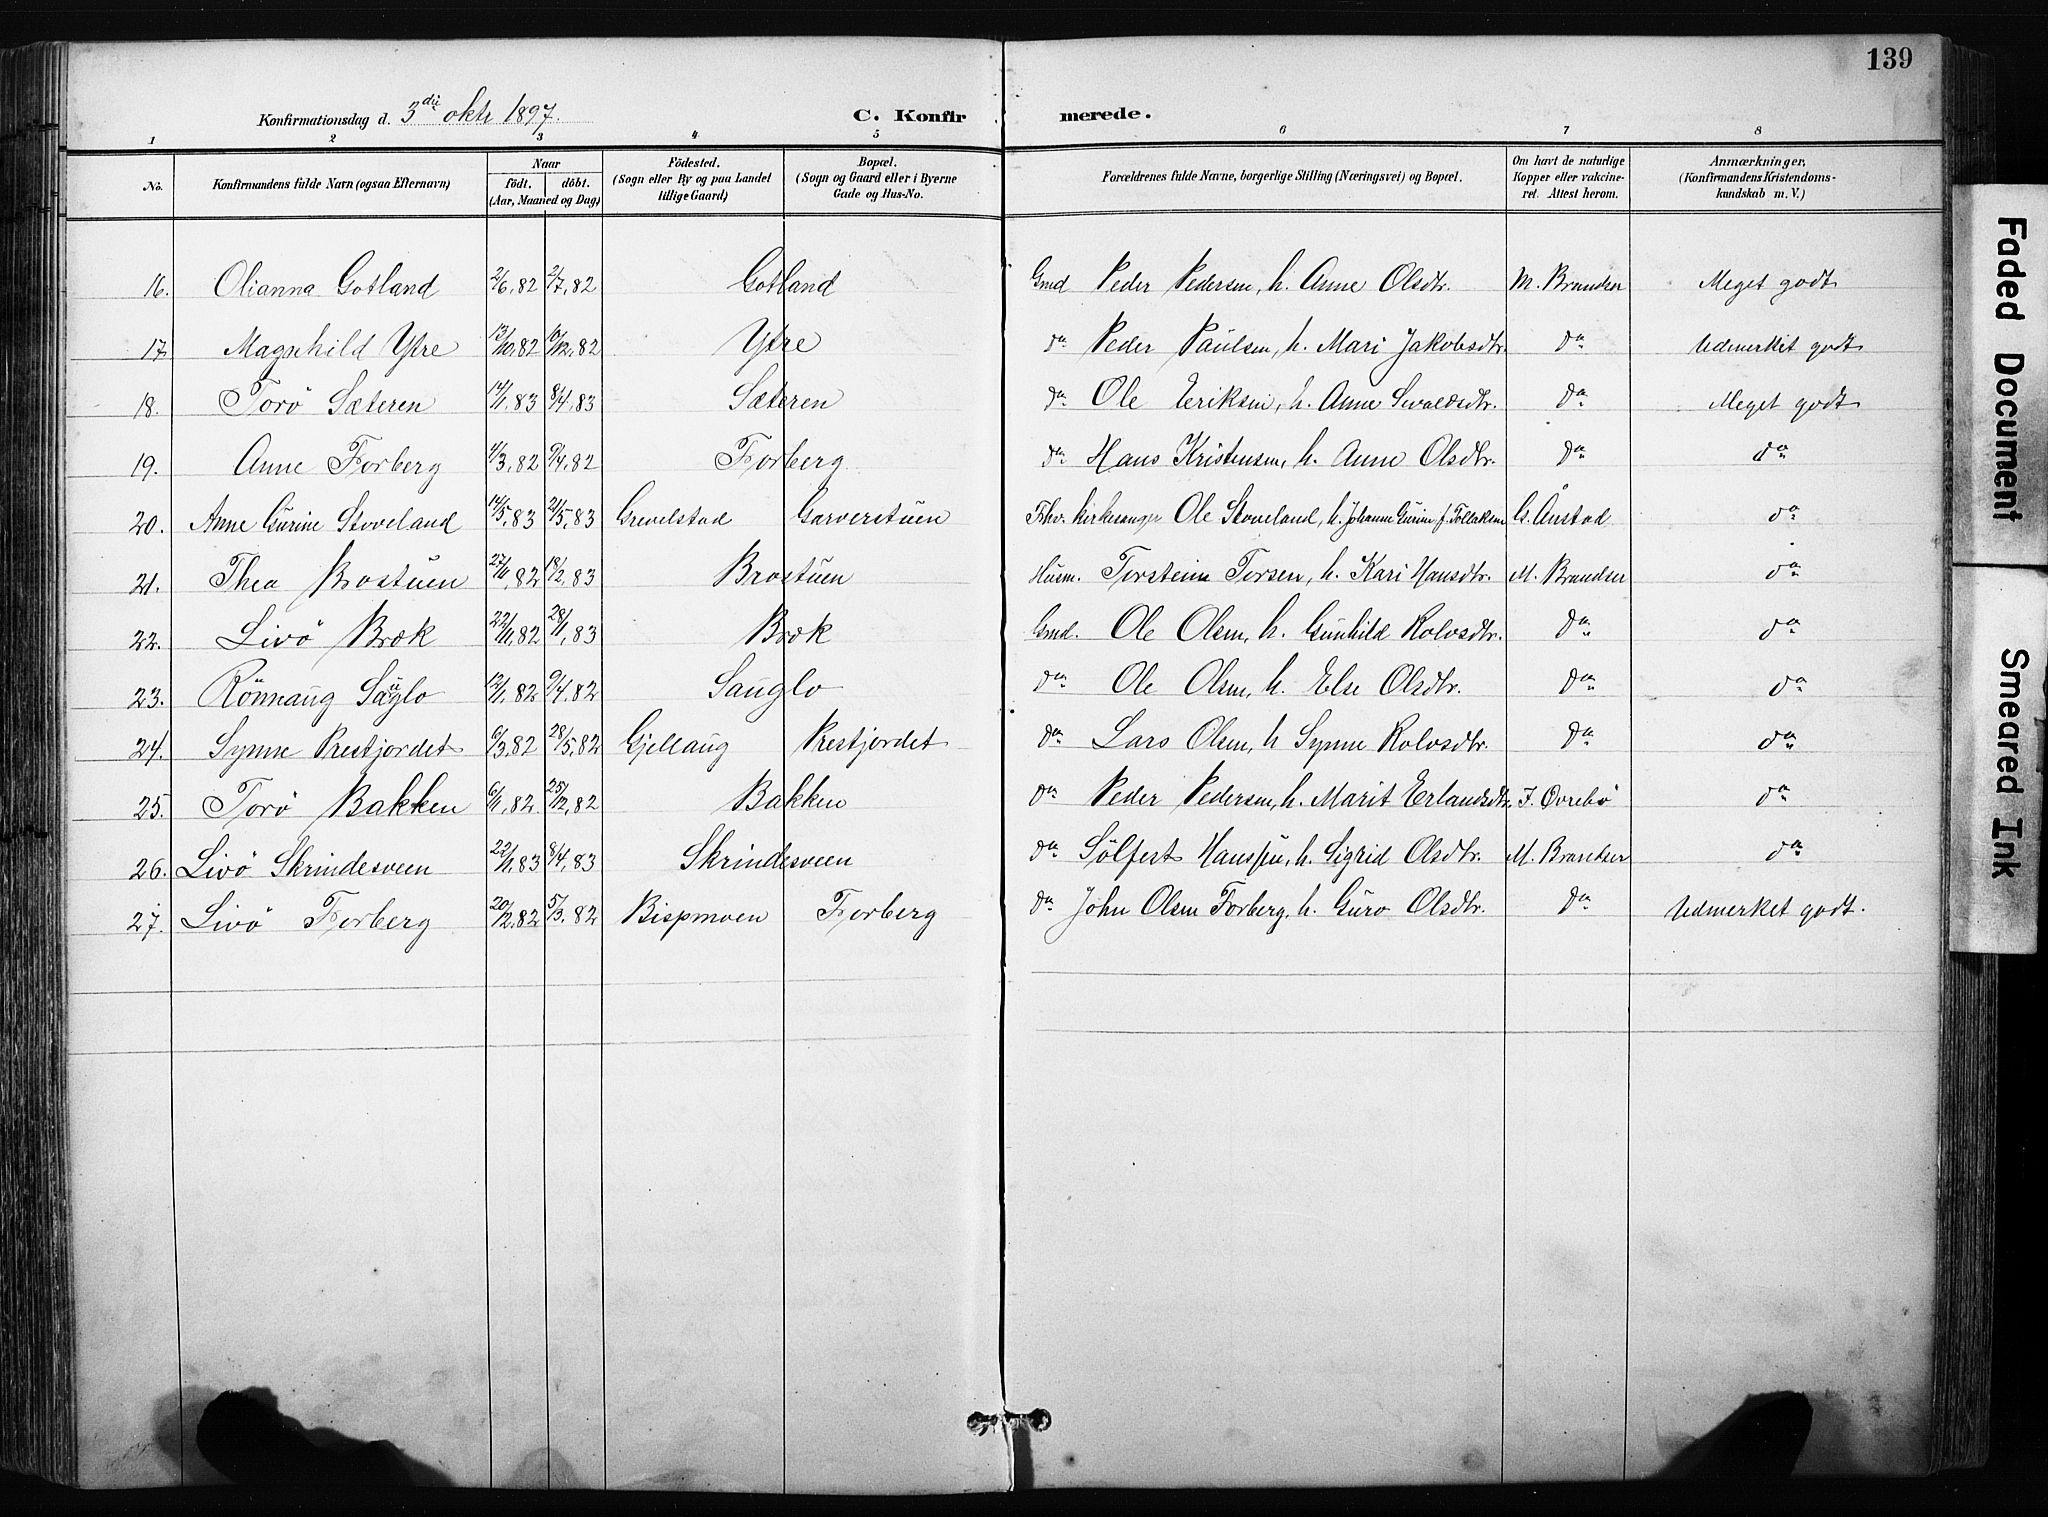 139
Konfirmationsdag d. 3die oktr 1897.
C. Konfirmerede.
1 2 3 4 5 6 7 8
No. Konfirmandens fulde Navn (ogsaa Efternavn) Naar født. døbt. (Aar, Maaned og Dag) Fødested. (Sogn eller By og paa Landet tillige Gaard) Bopæl. (Sogn og Gaard eller i Byerne Gade og Hus-No. Forældrenes fulde Navne, borgerlige Stilling (Næringsvei) og Bopæl. Om havt de naturlige Kopper eller vakcineret. Attest herom. Anmærkninger, (Konfirmandens Kristendomskundskab m. V.)
16. Olianna Gotland 2/6,82 2/7,82 Gotland Gmd Peder Pedersen, h. Anne Olsdtr. M. Brandser Meget godt
17. Magnhild Ytre 13/10,82 10/12,82 Ytre do Peder Paulsen, h. Mari Jakobsdtr. do Udmerket godt
18. Torö Sæteren 14/1,83 8/4,83 Sæteren do Ole Eriksen, h. Anne Sivaldsdtr. do Meget godt
19. Anne Forberg 4/3,82 9/4,82 Forberg do Hans Kristensen, h. Anne Olsdtr. do do
20. Anne Gurine Stoveland 14/5,83 21/5,83 Grevelstad Garverstuen Fhv. kirkesanger Ole Stoveland, h. Johanne Gurine f. Tollaksen G. Anstad do
21. Thea Brostuen 27/11,82 18/2,83 Brostuen Husm. Torstein Torsen, h. Kari Hansdtr. M. Brandser do
22. Livö Bræk 22/11,82 28/1,83 Bræk Gmd. Ole Olsen, h. Gunhild Rolvsdtr. do do
23. Rönnaug Sauglo 12/1,82 9/4,82 Sauglo do Ole Olsen, h. Else Olsdtr. do do
24. Synne Prestjordet 6/3,82 28/5,82 Gjellaug Prestjordet do Lars Olsen, h Synne Rolvsdtr. do do
25. Torö Bakken 6/11,82 25/12,82 Bakken do Peder Pedersen, h. Marit Erlandsdtr. J. Övrebö do
26. Livö Skrindesveen 22/1,83 8/4,83 Skrindesveen do Sölfest Hans, h. Sigrid Olsdtr. M. Brandser do
27. Livö Forberg 20/2,82 5/3,82 Bispmoen Forberg do John Olsen Forberg, h. Guro Olsdtr. do Udmerket godt.
Faded Document
Smeared Ink